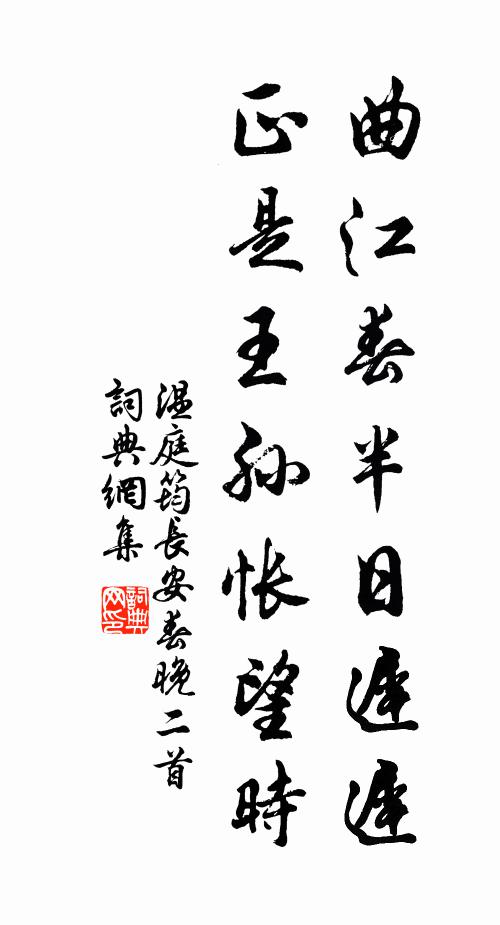 曲江春半日遲遲
正是王孫悵望時
温庭筠長安春晚二首
詞典網集
詞典网印